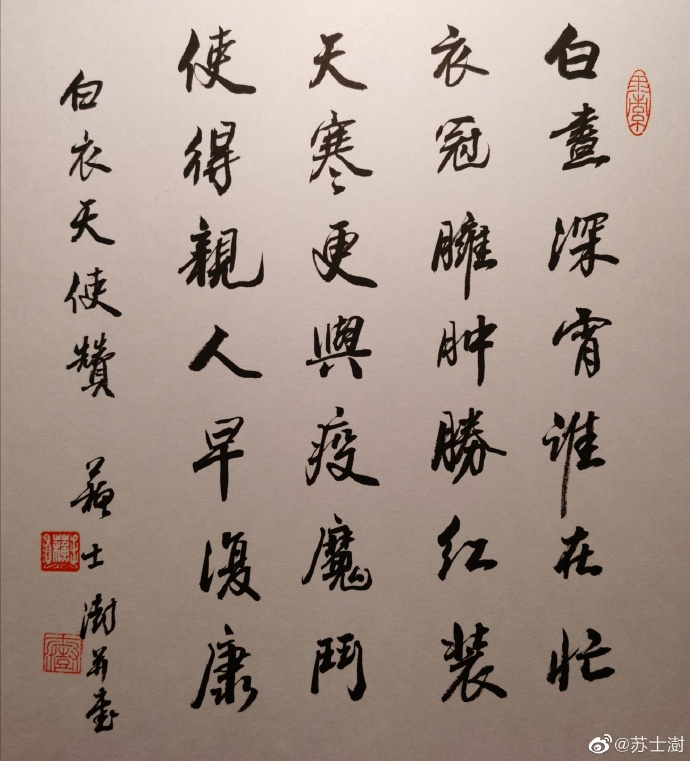 白晝深宵谁在忙
衣冠臃肿勝红装
天寒更與疫魔鬥
使得親人早復康
白衣天使赞 蘇士澍并書
@苏士澍